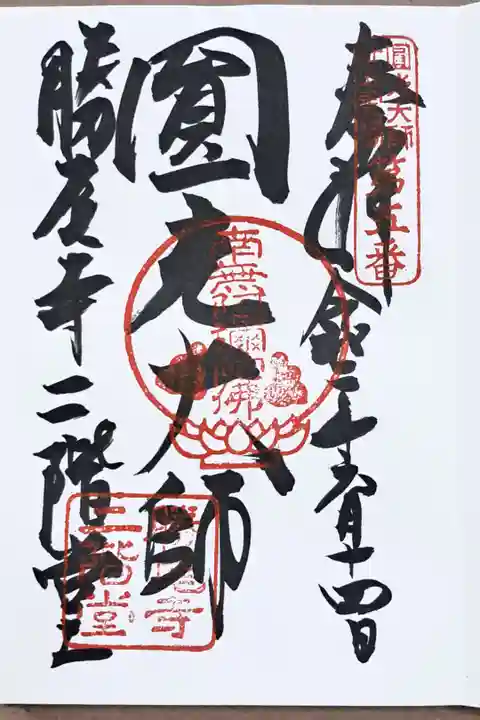 奉拝 令和二年六月十四日
圓光大師
勝尾寺二階堂
圓光大師
第五番
南無阿弥陀佛
勝尾寺
二階堂